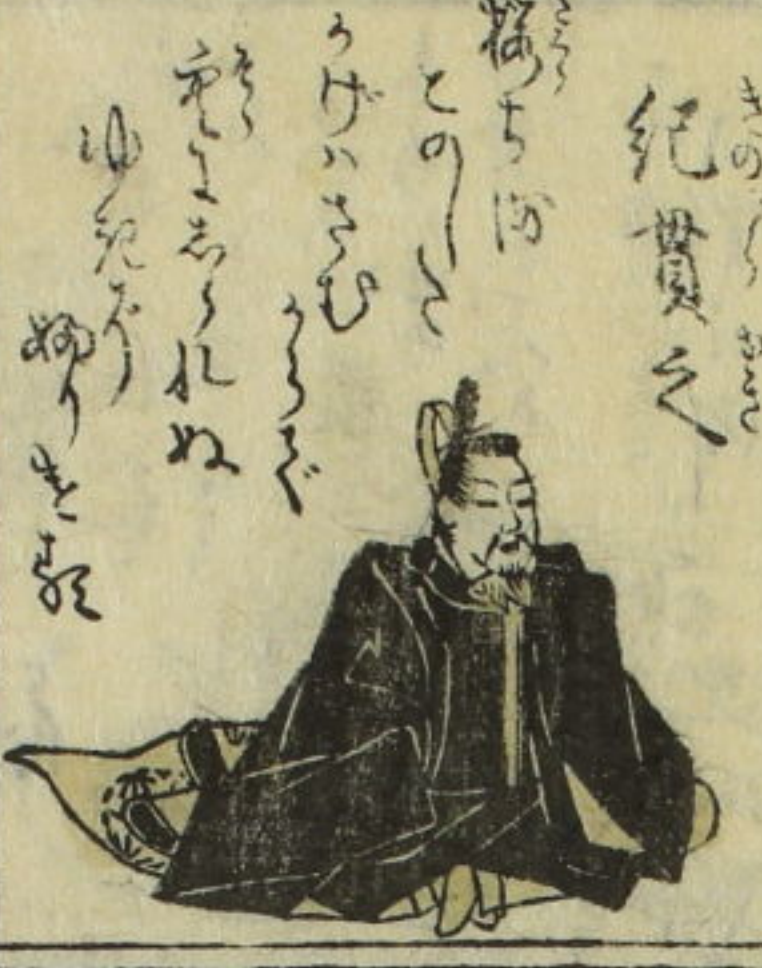 きのつらゆき
紀貫之
さくら
桜ちる
このした
かげハさむ
からで
そら
空にしられぬ
ゆきぞ
ふりける